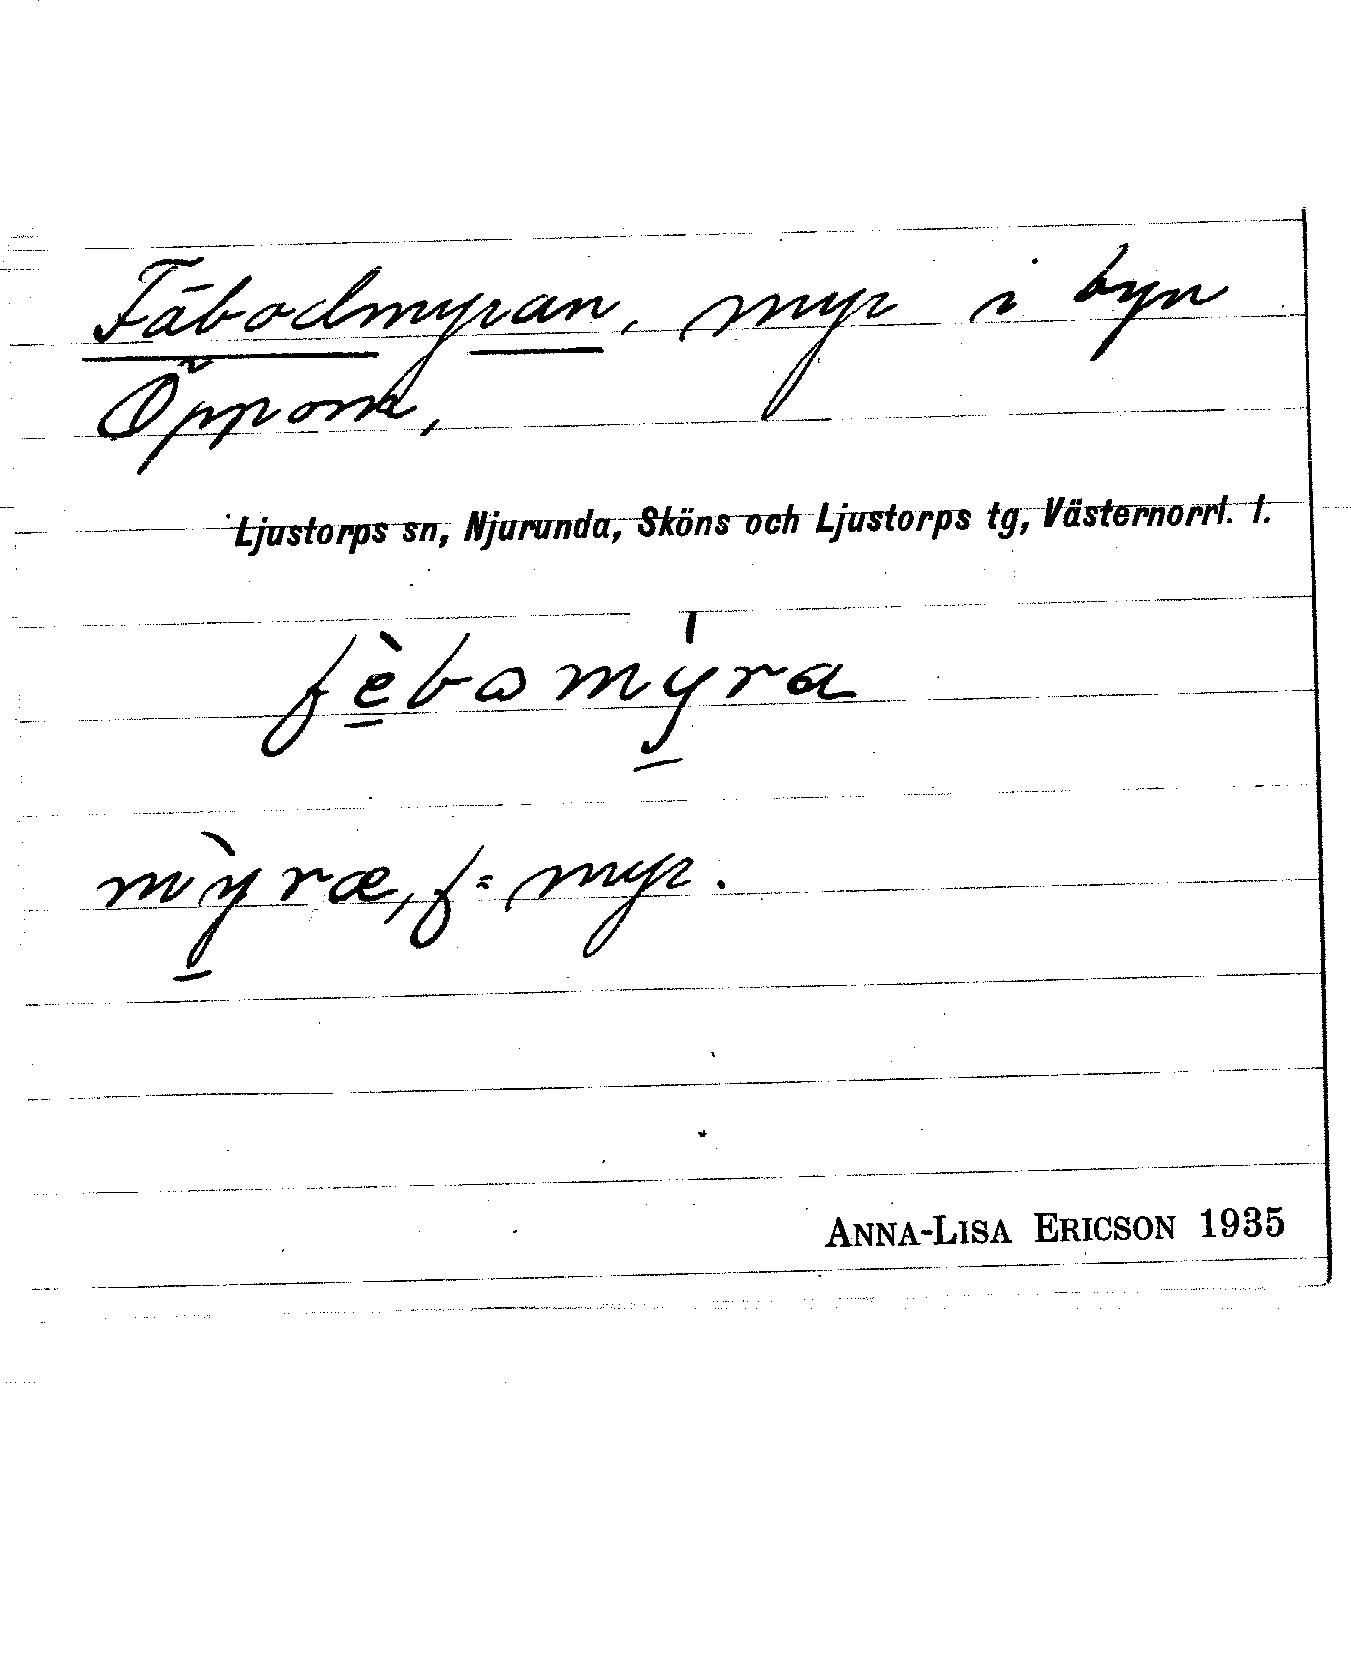 Fäbodmyran, myr i byn
Öppom,
Ljustorps sn, Njurunda, Sköns och Ljustorps tg, Västernorrl. l.
fèbomy̍ra
mỳræ, f = myr.
ANNA-LISA ERICSON 1935